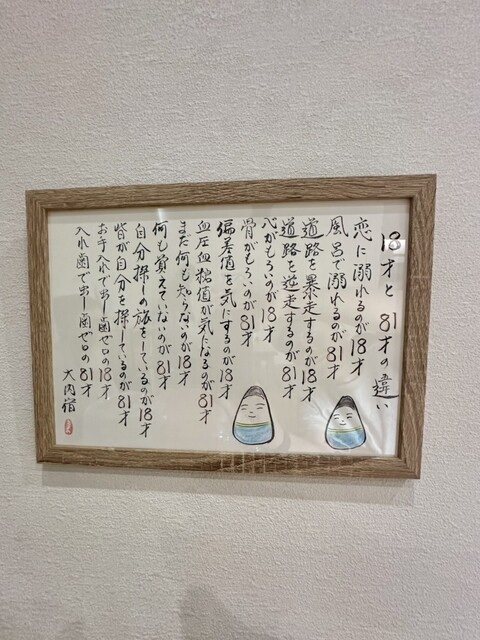 18才と81才の違い
恋に溺れるのが18才
風呂で溺れるのが81才
道路を暴走するのが18才
道路を逆走するのが81才
心がもろいのが18才
骨がもろいのが81才
偏差値を気にするのが18才
血圧血糖値が気になるのが81才
まだ何も知らないのが18才
何も覚えていないのが81才
自分探しの旅をしているのが18才
皆が自分を探しているのが81才
お手入れで虫歯ゼロの18才
入れ歯で虫歯ゼロの81才
大内宿